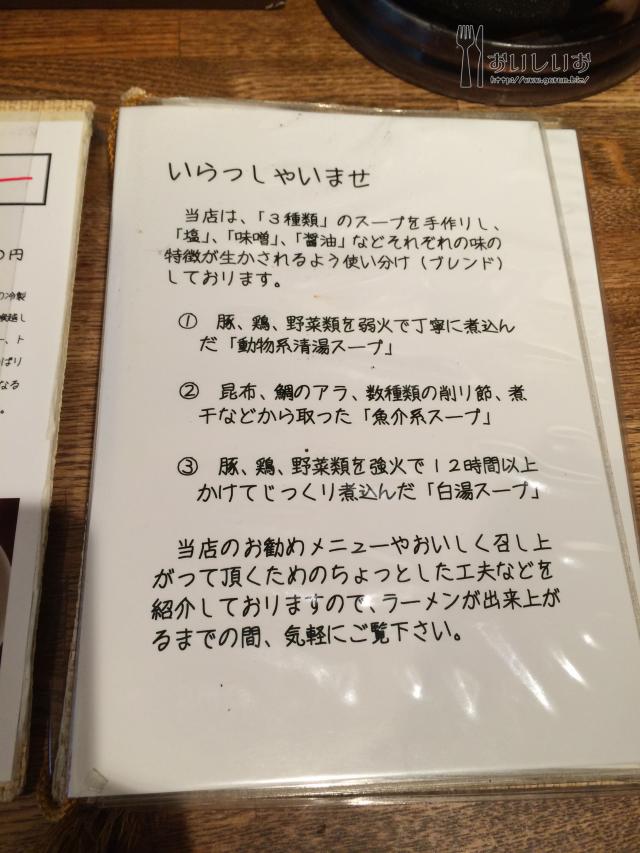 おいしいお
https://www.gurun.biz/
いらっしゃいませ
当店は、「３種類」のスープを手作りし、
「塩」、「味噌」、「醤油」などそれぞれの味の
特徴が生かされるよう使い分け（ブレンド）
しております。
① 豚、鶏、野菜類を弱火で丁寧に煮込ん
だ「動物系清湯スープ」
② 昆布、鯛のアラ、数種類の削り節、煮
干などから取った「魚介系スープ」
③ 豚、鶏、野菜類を強火で１２時間以上
かけてじっくり煮込んだ「白湯スープ」
当店のお勧めメニューやおいしく召し上
がって頂くためのちょっとした工夫などを
紹介しておりますので、ラーメンが出来上が
るまでの間、気軽にご覧下さい。
０円
の冷製
ー、ト
ぱり
なる
。